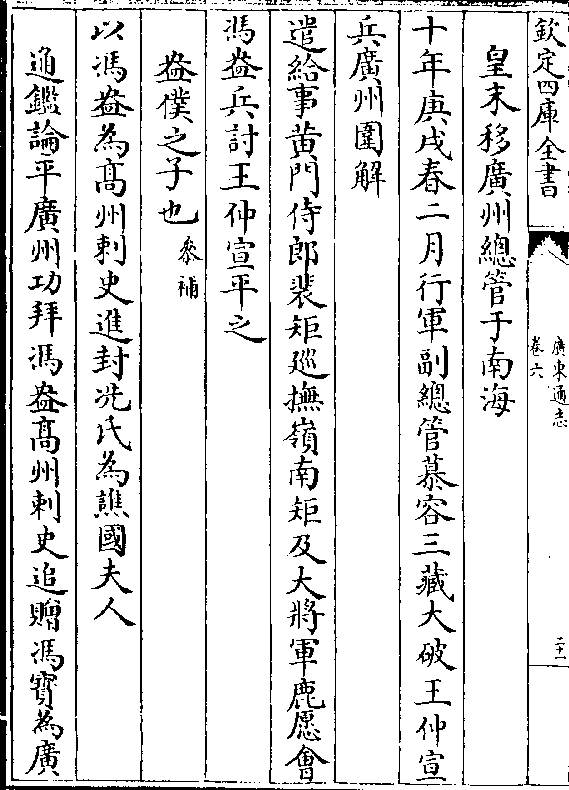 欽定四庫全書
廣東通志
卷六
二十一
皇末移廣州總管于南海
十年庚戌春二月行軍副總管慕容三藏大破王仲宣
兵廣州圍解
遣給事黄門侍郎裴矩廵撫嶺南矩及大將軍鹿愿會
馮盎兵討王仲宣平之
盎僕之子也叅補
以馮盎為髙州刺史進封冼氏為譙國夫人
通鑑論平廣州功拜馮盎髙州刺史追贈馮寳為廣